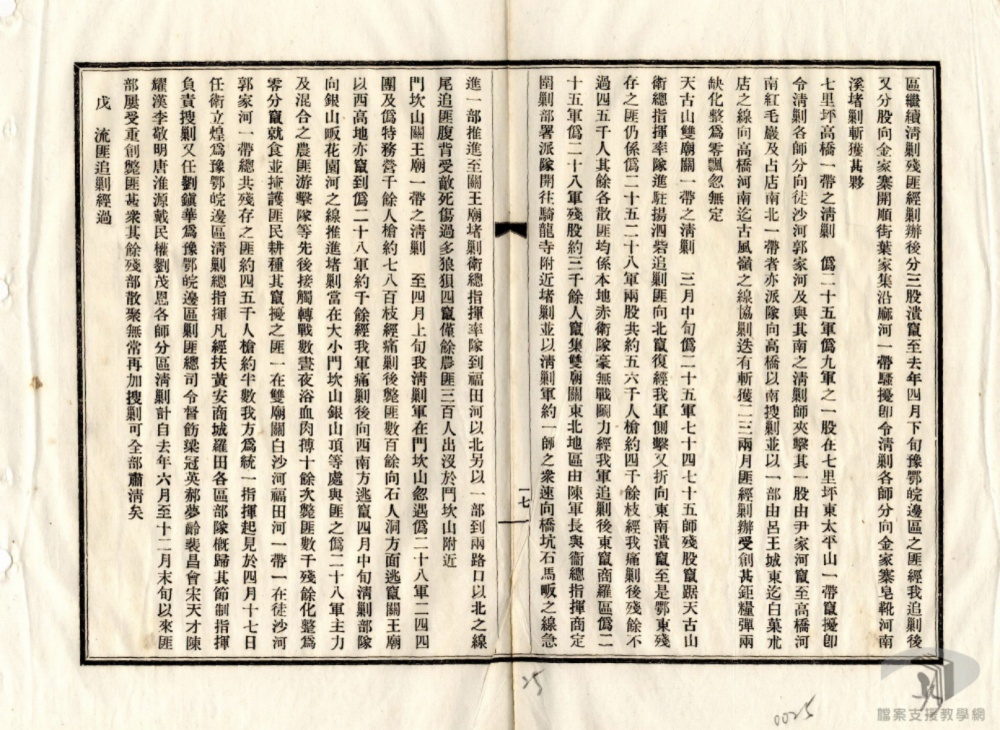 區繼續清剿殘匪經剿辦後分三股潰竄至去年四月下旬豫鄂皖邊區之匪經我追剿後
又分股向金家寨開順街葉家集沿廠河一帶騷擾卽令清剿各師分向金家寨皂靴河南
溪堵剿斬獲甚夥
七里坪高橋一帶之清剿　僞二十五軍僞九軍之一股在七里坪東太平山一帶竄擾卽
令清剿各師分向徒沙河郭家河及與其南之清剿師夾擊其一股由尹家河竄至高橋河
南紅毛巖及占店南北一帶者亦派隊向高橋以南搜剿並以一部由呂王城東迄白菓朮
店之線向高橋河南迄古風嶺之線協剿迭有斬獲二三兩月匪經剿辦受創甚鉅糧彈兩
缺化整爲零飄忽無定
天古山雙廟關一帶之清剿　三月中旬僞二十五軍七十四七十五師殘股竄踞天古山
衛總指揮率隊進駐揚泗砦追剿匪向北竄復經我軍側擊又折向東南潰竄至是鄂東殘
存之匪仍係僞二十五二十八軍兩股共約五六千人槍約四千餘枝經我痛剿後殘餘不
過四五千人其餘各散匪均係本地赤衛隊豪無戰鬭力經我軍追剿後東竄商羅區僞二
十五軍僞二十八軍殘股約三千餘人竄集雙廟關東北地區由陳軍長與衛總指揮商定
圍剿部署派隊開往騎龍寺附近堵剿並以清剿軍約一師之衆速向橋坑石馬畈之線急
一七
進一部推進至關王廟堵剿衛總指揮率隊到福田河以北另以一部到兩路口以北之線
尾追匪腹背受敵死傷過多狼狽四竄僅餘農匪三百人出沒於鬥坎山附近
門坎山關王廟一帶之清剿　至四月上旬我清剿軍在門坎山忽遇僞二十八軍二四四
團及僞特務營千餘人槍約七八百枝經痛剿後斃匪數百餘向石人洞方面逃竄關王廟
以西高地亦竄到僞二十八軍約千餘經我軍痛剿後向西南方逃竄四月中旬清剿部隊
向銀山畈花園河之線推進堵剿當在大小門坎山銀山項等處與匪之僞二十八軍主力
及混合之農匪游擊隊等先後接觸轉戰數晝夜浴血肉搏十餘次斃匪數千殘餘化整爲
零分竄就食並掩護匪民耕種其竄擾之匪一在雙廟關白沙河福田河一帶一在徒沙河
郭家河一帶總共殘存之匪約四五千人槍約半數我方爲統一指揮起見於四月十七日
任衛立煌爲豫鄂皖邊區清剿總指揮凡經扶黃安商城羅田各區部隊概歸其節制指揮
負責搜剿又任劉鎭華爲豫鄂皖邊區剿匪總司令督飭梁冠英郝夢齡裴昌會宋天才陳
耀漢李敬明唐淮源戴民權劉茂恩各師分區清剿計自去年六月至十二月末旬以來匪
部屢受重創斃匪甚衆其餘殘部散聚無常再加搜剿可全部肅清矣
戊　流匪追剿經過
25
0025
檔案支援教學網